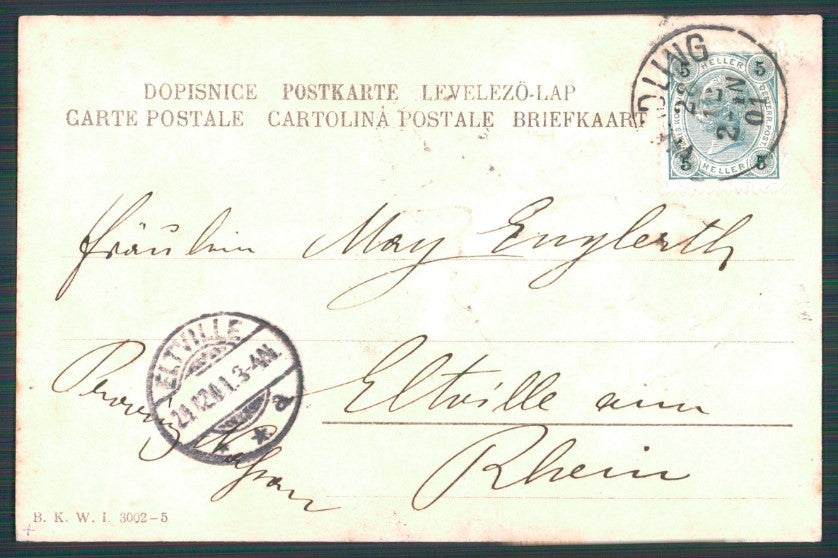 DOPISNICE POSTKARTE LEVELEZÖ-LAP
CARTE POSTALE CARTOLINA POSTALE BRIEFKAART
5 HELLER 5
5 HELLER 5
MÖDLING
22
01
Fräulein May Englerth
ELTVILLE
24.12.01.3-4N
a
Eltville am
Rhein
Provinz Nassau
B. K. W. I. 3002-5